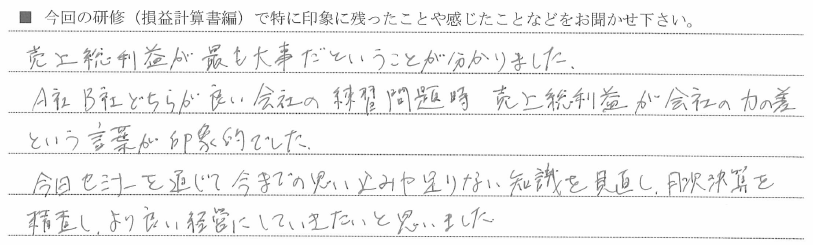 ■ 今回の研修（損益計算書編）で特に印象に残ったことや感じたことなどをお聞かせ下さい。
売上総利益が最も大事だということが分かりました。
A社B社どちらが良い会社の練習問題時 売上総利益が会社の力の差
という言葉が印象的でした。
今回セミナーを通じて今までの思い込みや足りない知識を見直し、月次決算を
精査し、より良い経営にしていきたいと思いました